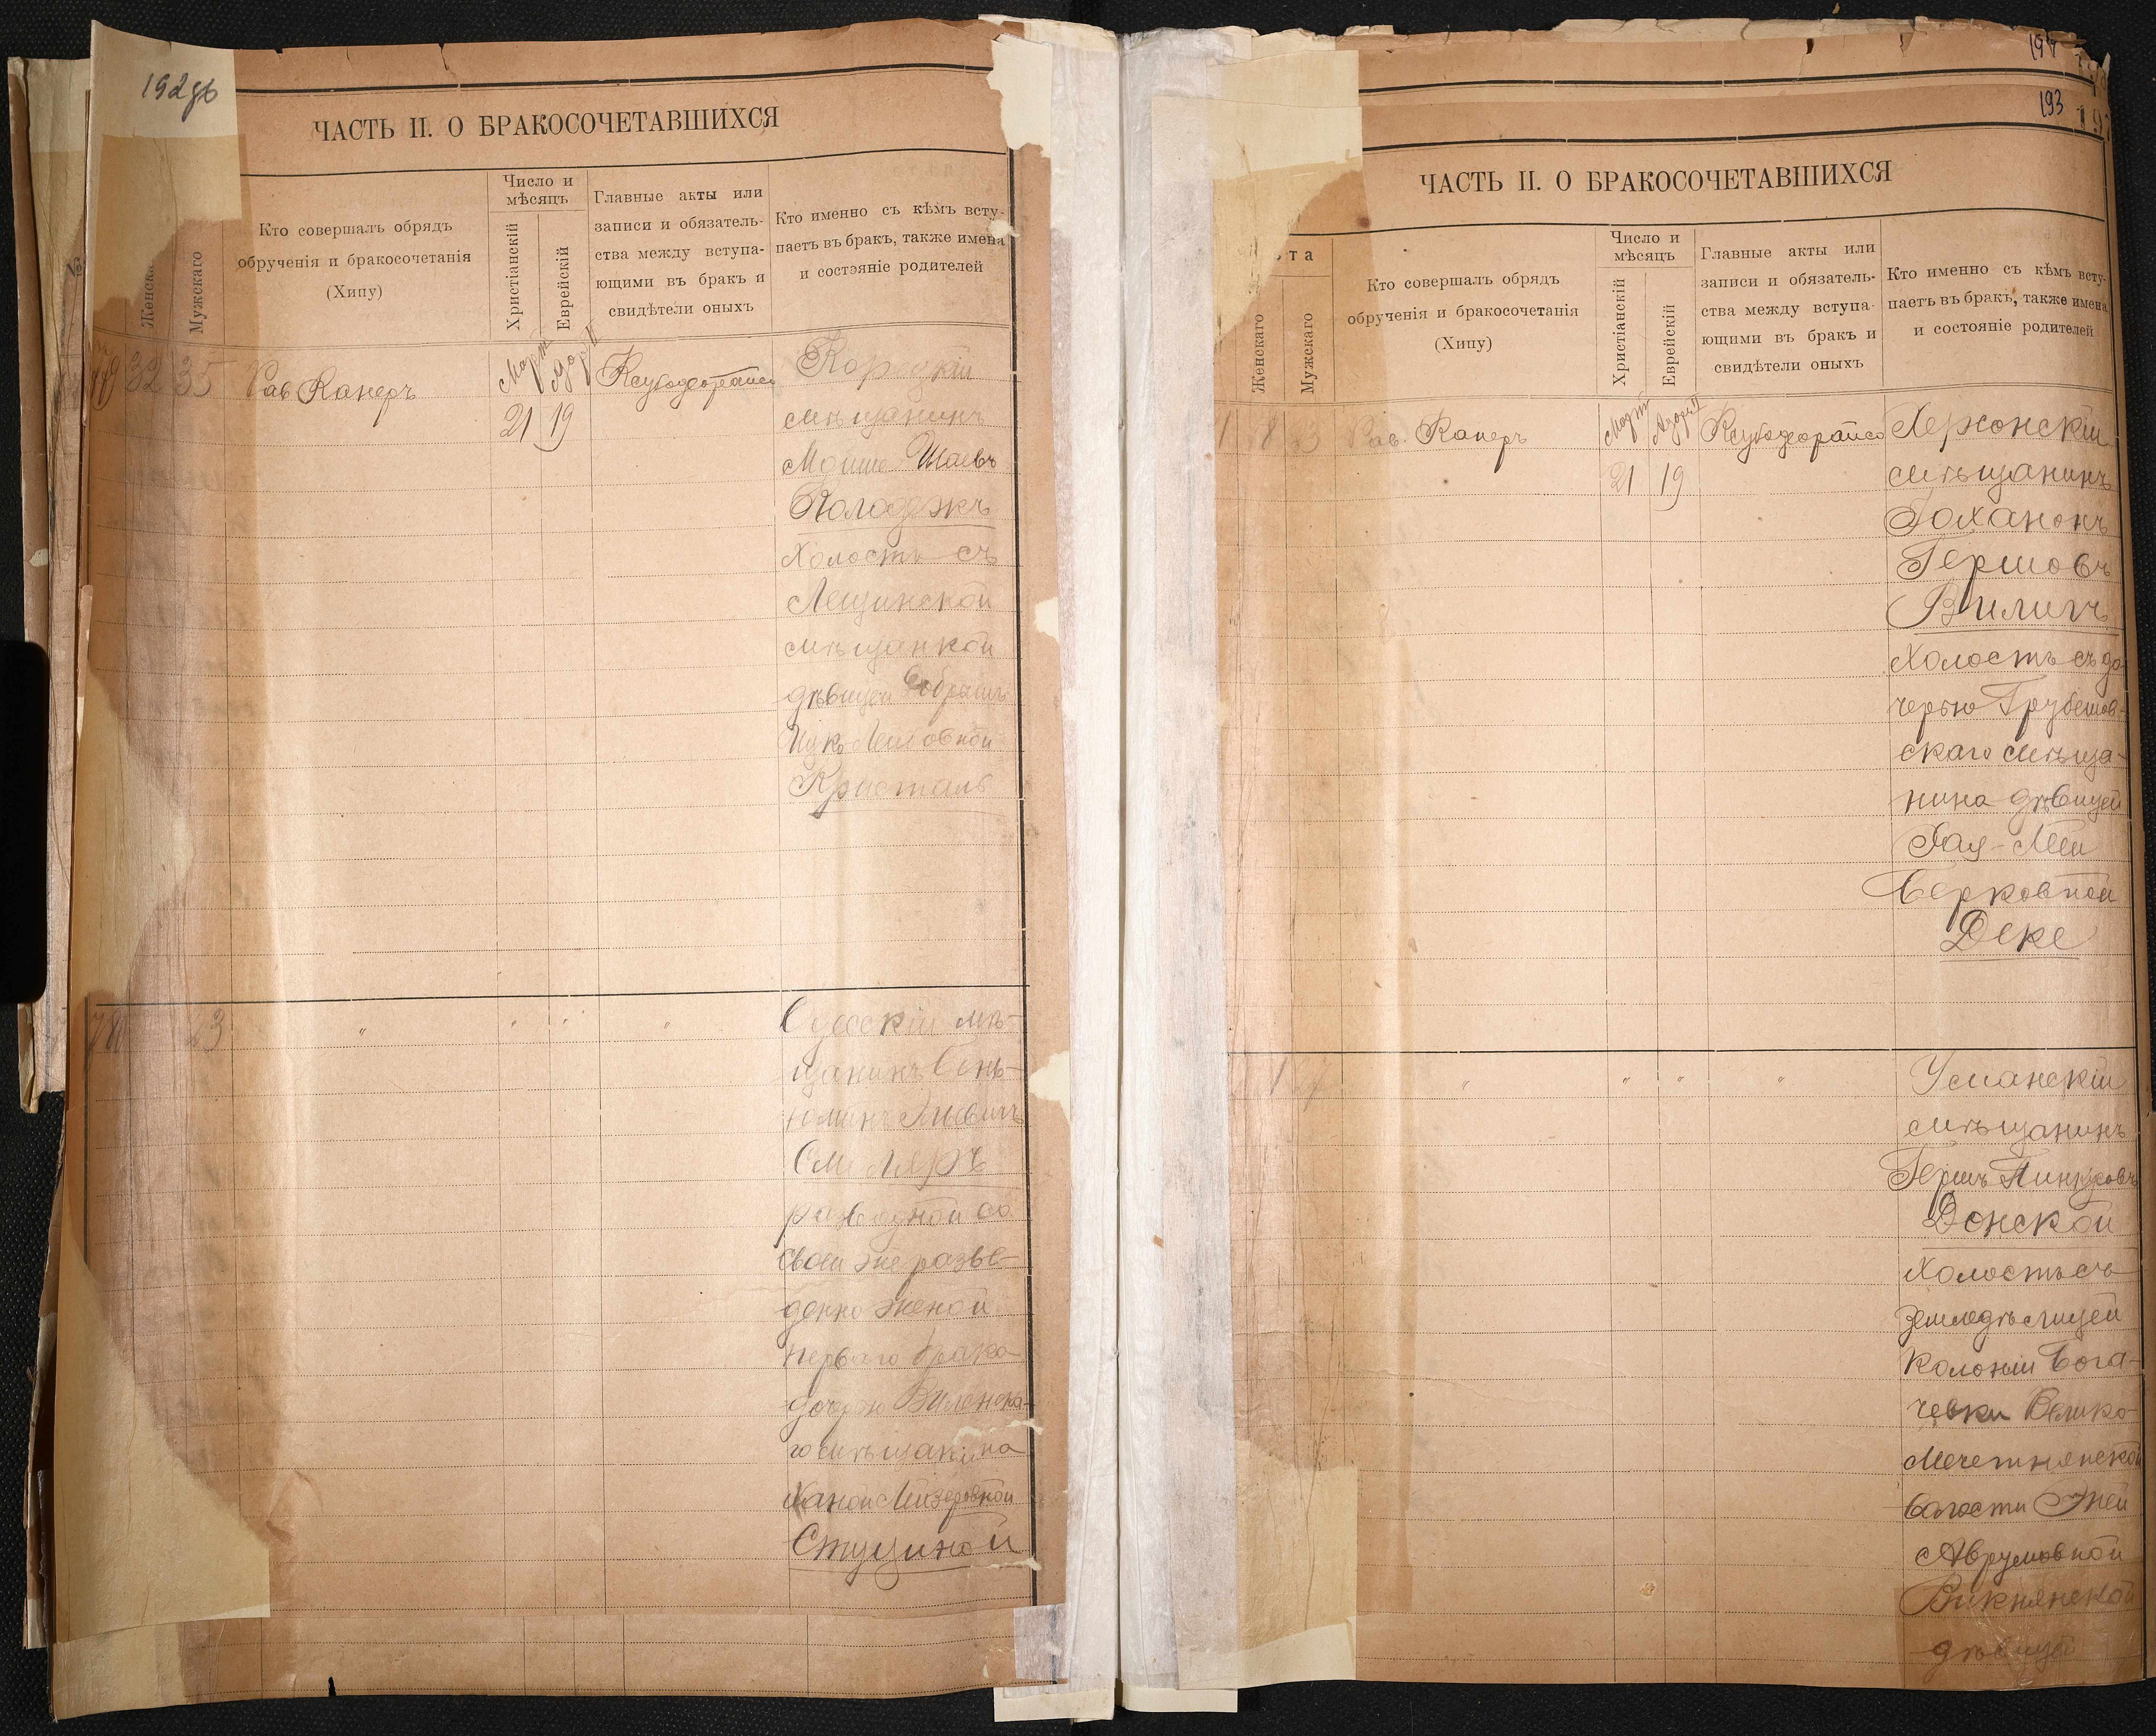 192 об
ЧАСТЬ II. О БРАКОСОЧЕТАВШИХСЯ
№
Женска
Мужскаго
Кто совершалъ обрядъ
обрученія и бракосочетанія
(Хипу)
Число и
мѣсяцъ
Христіанскій
Еврейскій
Главные акты или
записи и обязатель-
ства между вступа-
ющими въ бракъ и
свидѣтели оныхъ
Кто именно съ кѣмъ всту-
паетъ въ бракъ, также имена
и состояніе родителей
32 35 Рав Канеръ
Март
21 19
мѣщанинъ
Мойше Шаевъ
Колодежъ
Холостъ съ
Лещинской
мѣщанкой
дѣвицей
Ицко Лейбовной
Кристаль
23 " " " "
Одесскій мѣ-
щанинъ Бень-
Смоляръ
разводной со
своей же разве-
денно женой
перваго брака
дочерью Виленска-
го мѣщанина
Ханой Лейзеровной
Стуциной
194
193
ЧАСТЬ II. О БРАКОСОЧЕТАВШИХСЯ
та
Женскаго
Мужскаго
Кто совершалъ обрядъ
обрученія и бракосочетанія
(Хипу)
Число и
мѣсяцъ
Христіанскій
Еврейскій
Главные акты или
записи и обязатель-
ства между вступа-
ющими въ бракъ и
свидѣтели оныхъ
Кто именно съ кѣмъ всту-
паетъ въ бракъ, также имена
и состояніе родителей
Рав. Канеръ
Март
21 19
Херсонскій
мѣщанинъ
Іоханонъ
Гершовъ
Вилигъ
Холостъ съ до
черью Грубешов-
скаго мѣща-
нина дѣвицей
Хая-Леи
Берковной
Деке
" " " "
Уманскій
мѣщанинъ
Гершъ Пинкусовъ
Донской
Холостъ съ
земледѣлицей
колоніи Бога-
чевки Велико-
Мечетнянской
волости Эней
Аврумовной
Викнянской
дѣвицей